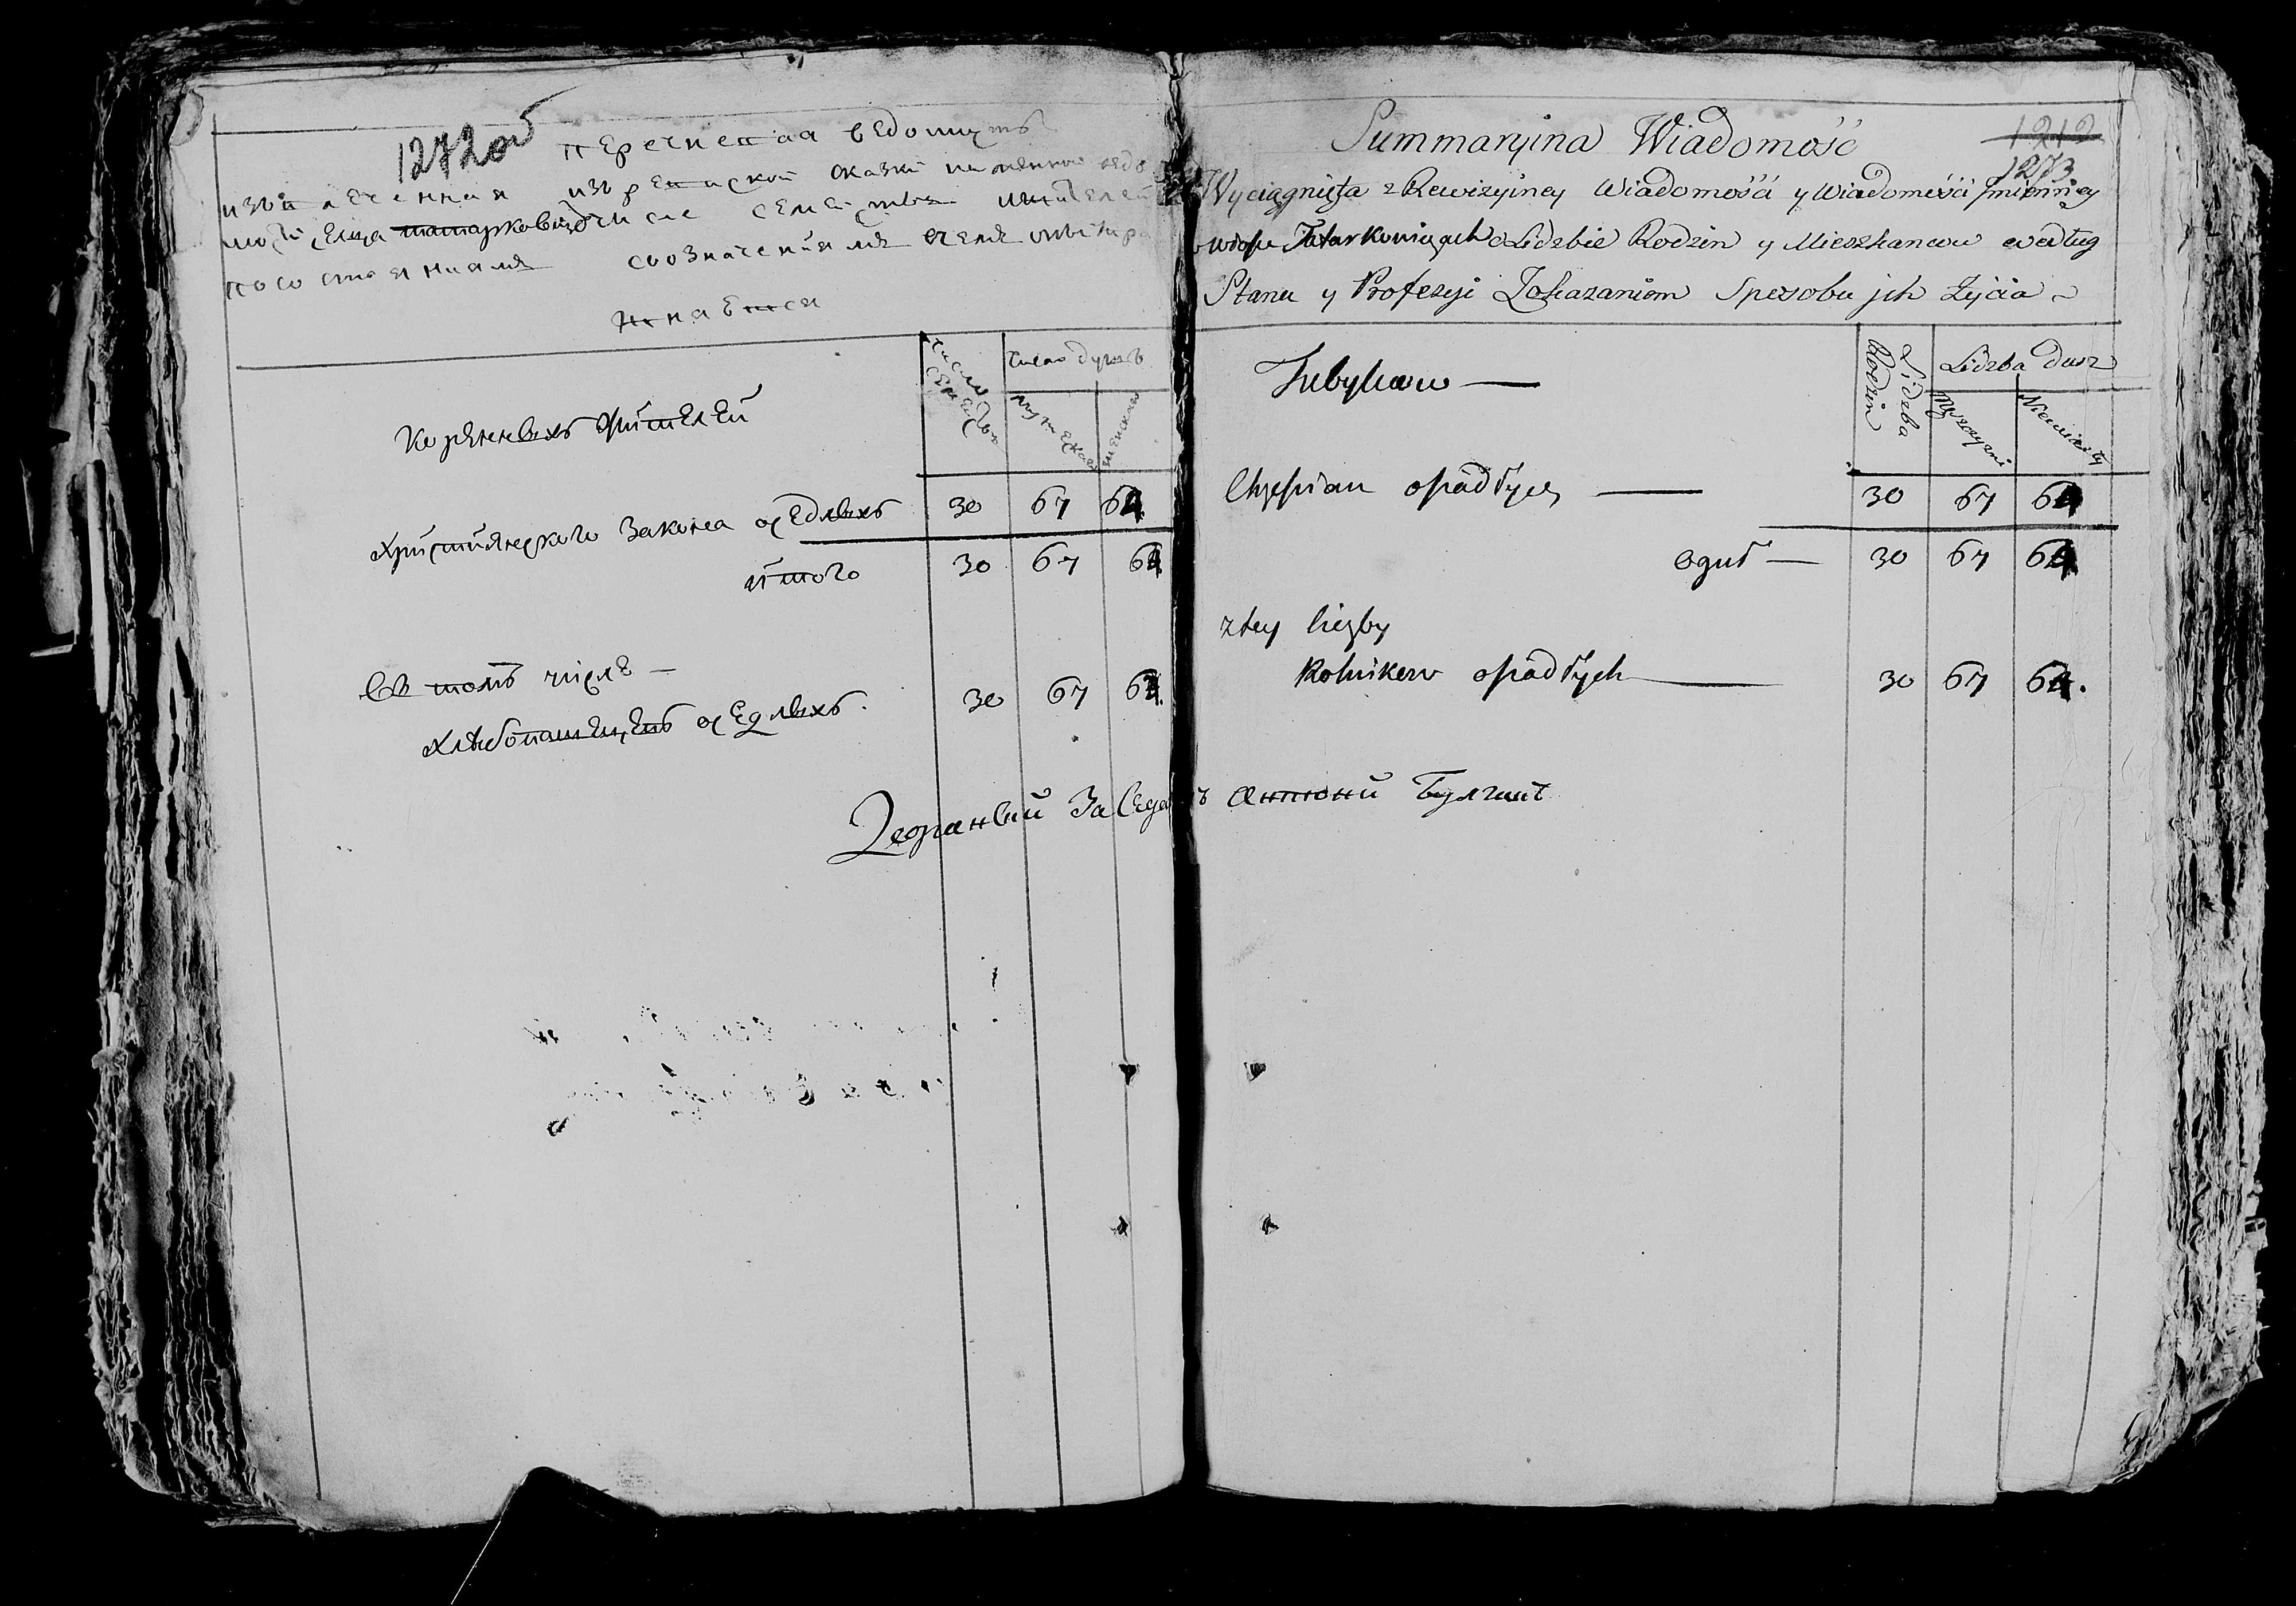 1272об
перечневая ведомость
извлеченная изъ ревизской сказки именной ведо
мости села татарковицъ о числе семействъ жителей
по состояниамъ со означениямъ чемъ они пра
питаваются
Кореннвхъ жителей
число семействъ
число душъ
мужеска
женска
християнского закона оседлвхъ 30 67 64
итого 30 67 64
въ томъ числъ —
хлебопашцевъ оседлвхъ 30 67 64.
Дворанвий Заседа ъ Антоний Булгакъ
Summaryina Wiadomość
1212
1273
Wyciągnięta z Rewizyiney Wiadomości y Wiadomości Imienney
o wiosce Tatarkowicach o Lidzbie Rodzin y Mieszkancow według
Stanu y Profesyi Zokazaniem Sposobu jch Życia
Tubylcow —
Lidzba Rodzin
Lidzba Dusz
Męszczyzni
Niewiasty
Chrześcian osiadłych — 30 67 64
Oguł — 30 67 64
z tey liczby
Rolnikow osiadłych — 30 67 64.